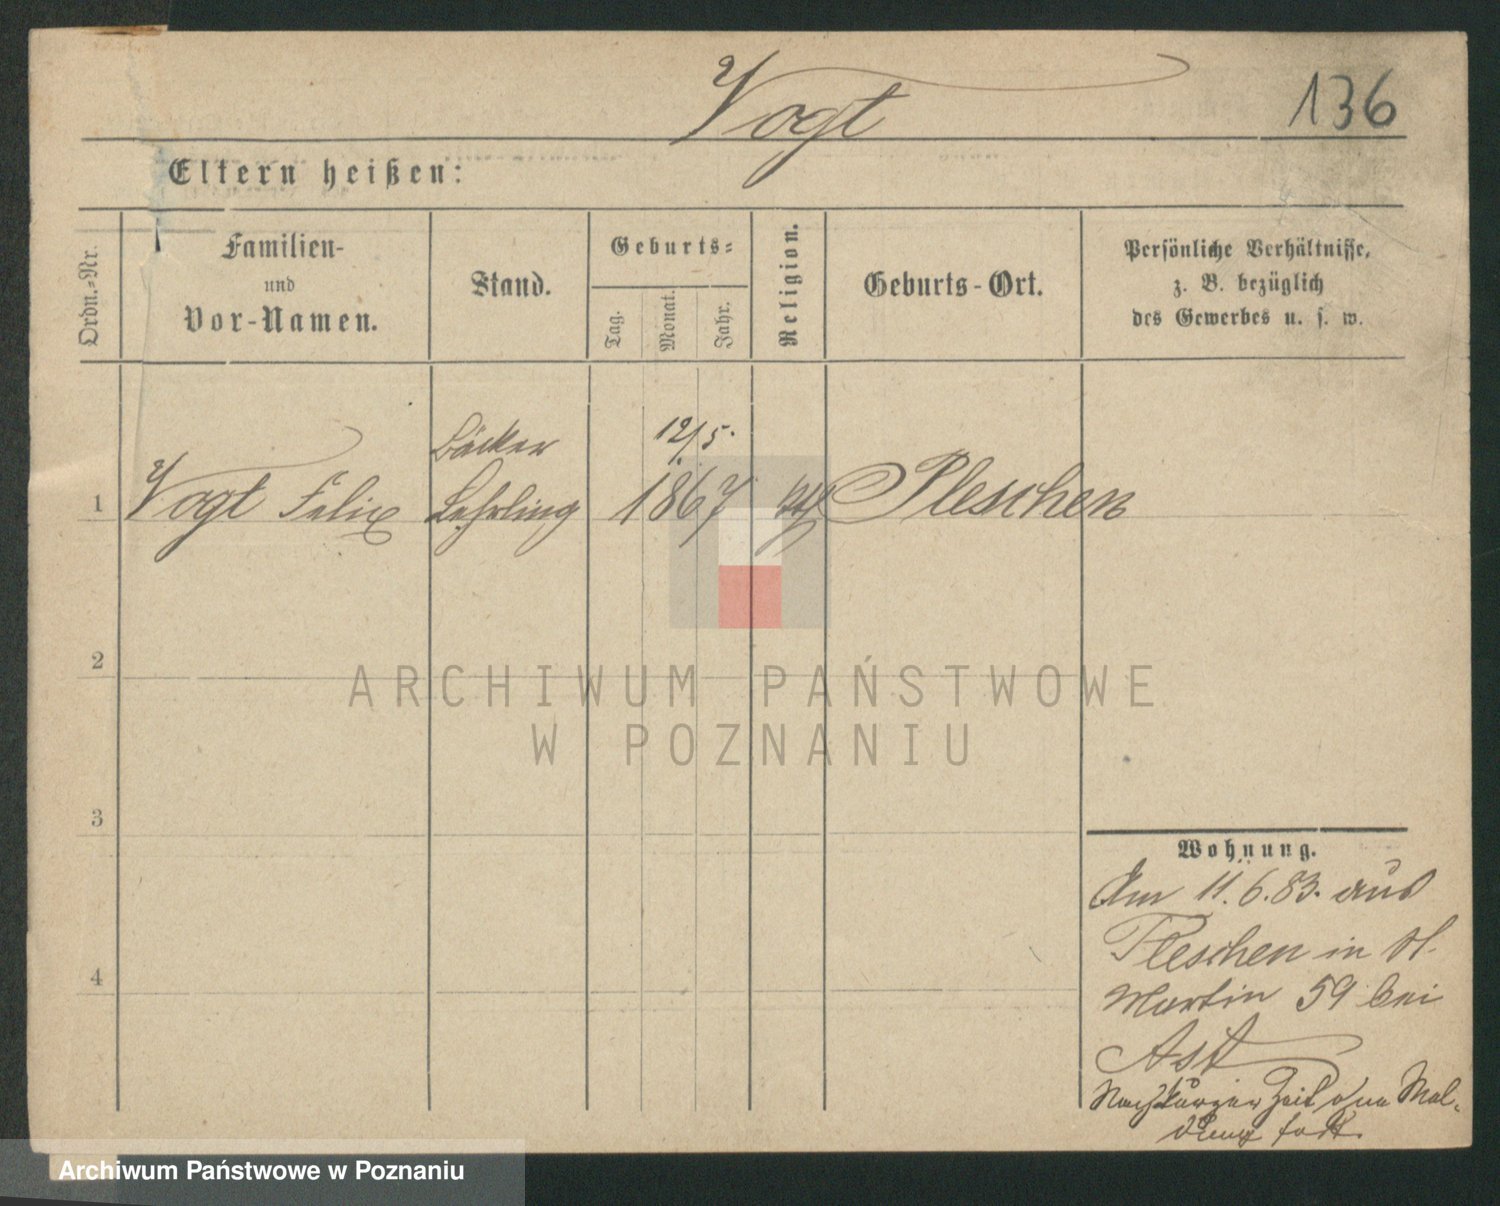 Vogt
136
Eltern heißen:
Ordn.-Nr.
Familien-
und
Vor-Namen.
Stand.
Geburts-
Tag.
Monat.
Jahr.
Religion.
Geburts-Ort.
Persönliche Verhältnisse,
z. B. bezüglich
des Gewerbes u. s. w.
Bäcker
12/5.
1 Vogt Felix Lehrling 1867 Pleschen
2
3
4
Wohnung.
Am 11.6.83. aus
Pleschen in St.
Martin 59 bei
Ast
Nach kurzer Zeit ohne Mel-
dung fort.
ARCHIWUM PAŃSTWOWE
W POZNANIU
Archiwum Państwowe w Poznaniu